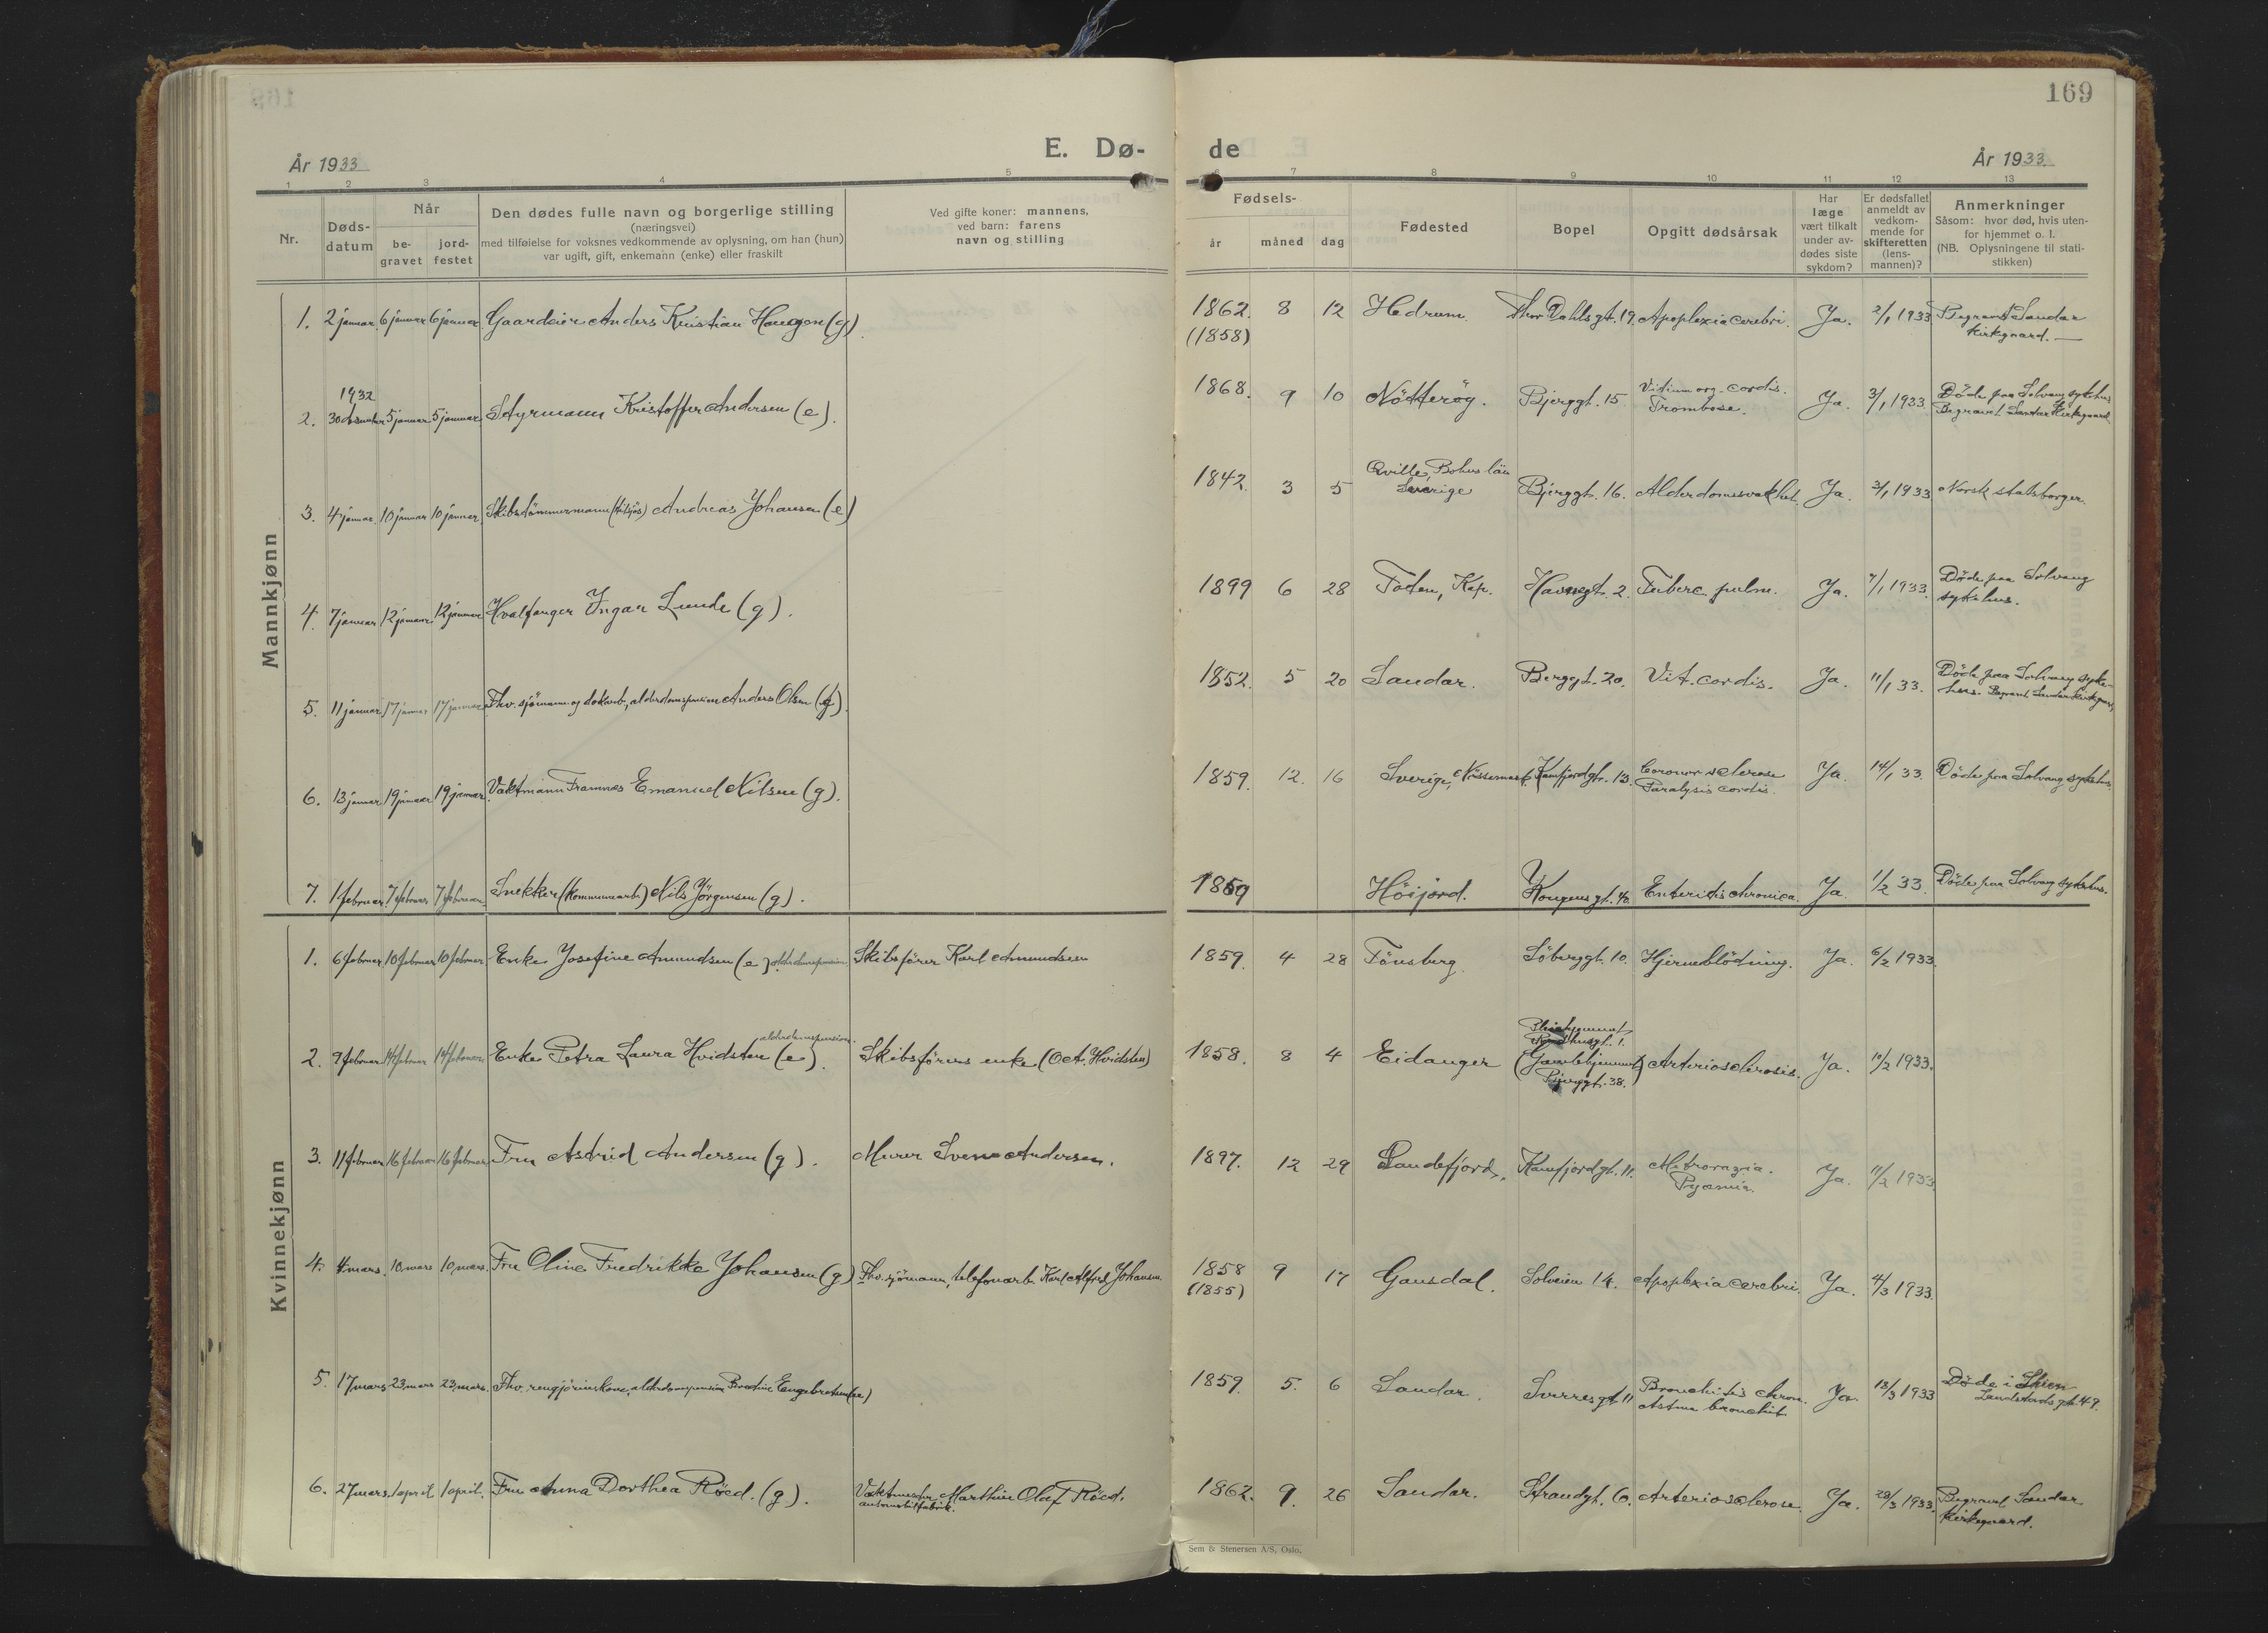 169
E. Dø- de
År 1933 År 1933.
1 2 3 4 5 6 7 8 9 10 11 12 13
Nr.
Døds-
datum
Når
be-
gravet
jord-
festet
Den dødes fulle navn og borgerlige stilling
(næringsvei)
med tilføielse for voksnes vedkommende av oplysning, om han (hun)
var ugift, gift, enkemann (enke) eller fraskilt
Ved gifte koner: mannens,
ved barn: farens
navn og stilling
Fødsels-
år måned dag
Fødested
Bopel
Opgitt dødsårsak
Har
læge
vært tilkalt
under av-
dødes siste
sykdom?
Er dødsfallet
anmeldt av
vedkom-
mende for
skifteretten
(lens-
mannen)?
Anmerkninger
Såsom: hvor død, hvis uten-
for hjemmet o. l.
(NB. Oplysningene til stati-
stikken)
Mannkjønn
1. 2 januar 6 januar 6 januar Gaardeier Anders Kristian Haugen (g). 1862. 8 12 Hedrum. Thor Dahls gt. 19. Apoplexia cerebri. Ja. 2/1 1933 Begravet Sandar
(1858) kirkgaard. —
1932
2. 30 desember 5 januar 5 januar Styrmann Kristoffer Andersen (e). 1868. 9 10 Nötteröy. Bjerggt. 15. Vitium org. cordis. Ja. 3/1 1933 Döde paa Solvang sykehus
Trombose. Begravet Sandar Kirkgaard
3. 4 januar 10 januar 10 januar Skibstömmermann Andreas Johansen (e) 1842. 3 5 Qville, Bohus län Bjerggt. 16. Alderdomssvakhet. Ja. 3/1 1933 Norsk statsborger.
Sverige
4. 7 januar 12 januar 12 januar Hvalfanger Ingar Lunde (g). 1899 6 28 Toten, Kap. Havnegt. 2. Tuberc. pulm. Ja. 7/1 1933. Döde paa Solvang
sykehus.
5. 11 januar 17 januar 17 januar Fhv. sjömann og dokarb., alderdomspension Anders Olsen (g). 1852. 5 20 Sandar. Berggt. 20. Vit. cordis. Ja. 11/1 33. Döde paa Solvang syke-
hus. Begravet Sandar kirkgaard,
6. 13 januar 19 januar 19 januar. Vaktmann Framnæs Emanuel Nilsen (g). 1859. 12. 16 Sverige, Kamfjordgt. 13. Coronar sclerose Ja. 14/1 33. Döde paa Solvang sykehus.
Paralysis cordis.
7. 1 februar 7 februar 7 februar Snekker (kommunearb.) Nils Jörgensen (g). 1859 Höijord. Kongens gt. Enteritis chronica. Ja. 1/2 33. Döde paa Solvang sykehus.
Kvinnekjønn
1. 6 februar 10 februar 10 februar Enke Josefine Amundsen (e) alderdomspension Skibsförer Karl Amundsen 1859. 4 28 Tönsberg. Söberggt. 10. Hjerneblödning. Ja. 6/2 1933.
2. 9 februar 14 februar 14 februar Enke Petra Laura Hvidsten (e). alderdomspension. Skibsförers enke (O. A. Hvidsten) 1858. 8 4 Eidanger Pleiehjemmet
(Gamlehjemmet) Arteriosclerosis. Ja. 10/2 1933.
Bjerggt. 38.
3. 11 februar 16 februar 16 februar Fru Astrid Andersen (g). Murer Svenn Andersen. 1897. 12 29 Sandefjord. Kamfjordgt. 11. Metroragia. Ja. 11/2 1933.
Pyæmia.
4. 4 mars. 10 mars 10 mars. Fru Oline Fredrikke Johansen (g) Fhv. sjömann, telefonarb. Karl Alfred Johansen 1858 9 17 Gausdal. Solveien 14. Apoplexia cerebri. Ja. 4/3 1933.
(1855)
5. 17 mars 23 mars 23 mars. Fhv. rengjöriskone, alderdomspension Engebretsen (e) 1859. 5. 6 Sandar. Sverresgt. 11 Bronchitis chron. Ja. 18/3 1933 Döde i Skien
Astma bronchit Landstads gt. 49.
6. 27 mars. 1 april 1 april. Fru Anna Dorthea Röed. (g). Vaktmester Marthin Olaf Röed. 1862. 9. 26 Sandar. Strandgt. 6. Arteriosclerose. Ja. 28/3 1933. Begravet Sandar
Kirkegaard.
Sem & Stenersen A/S, Oslo.